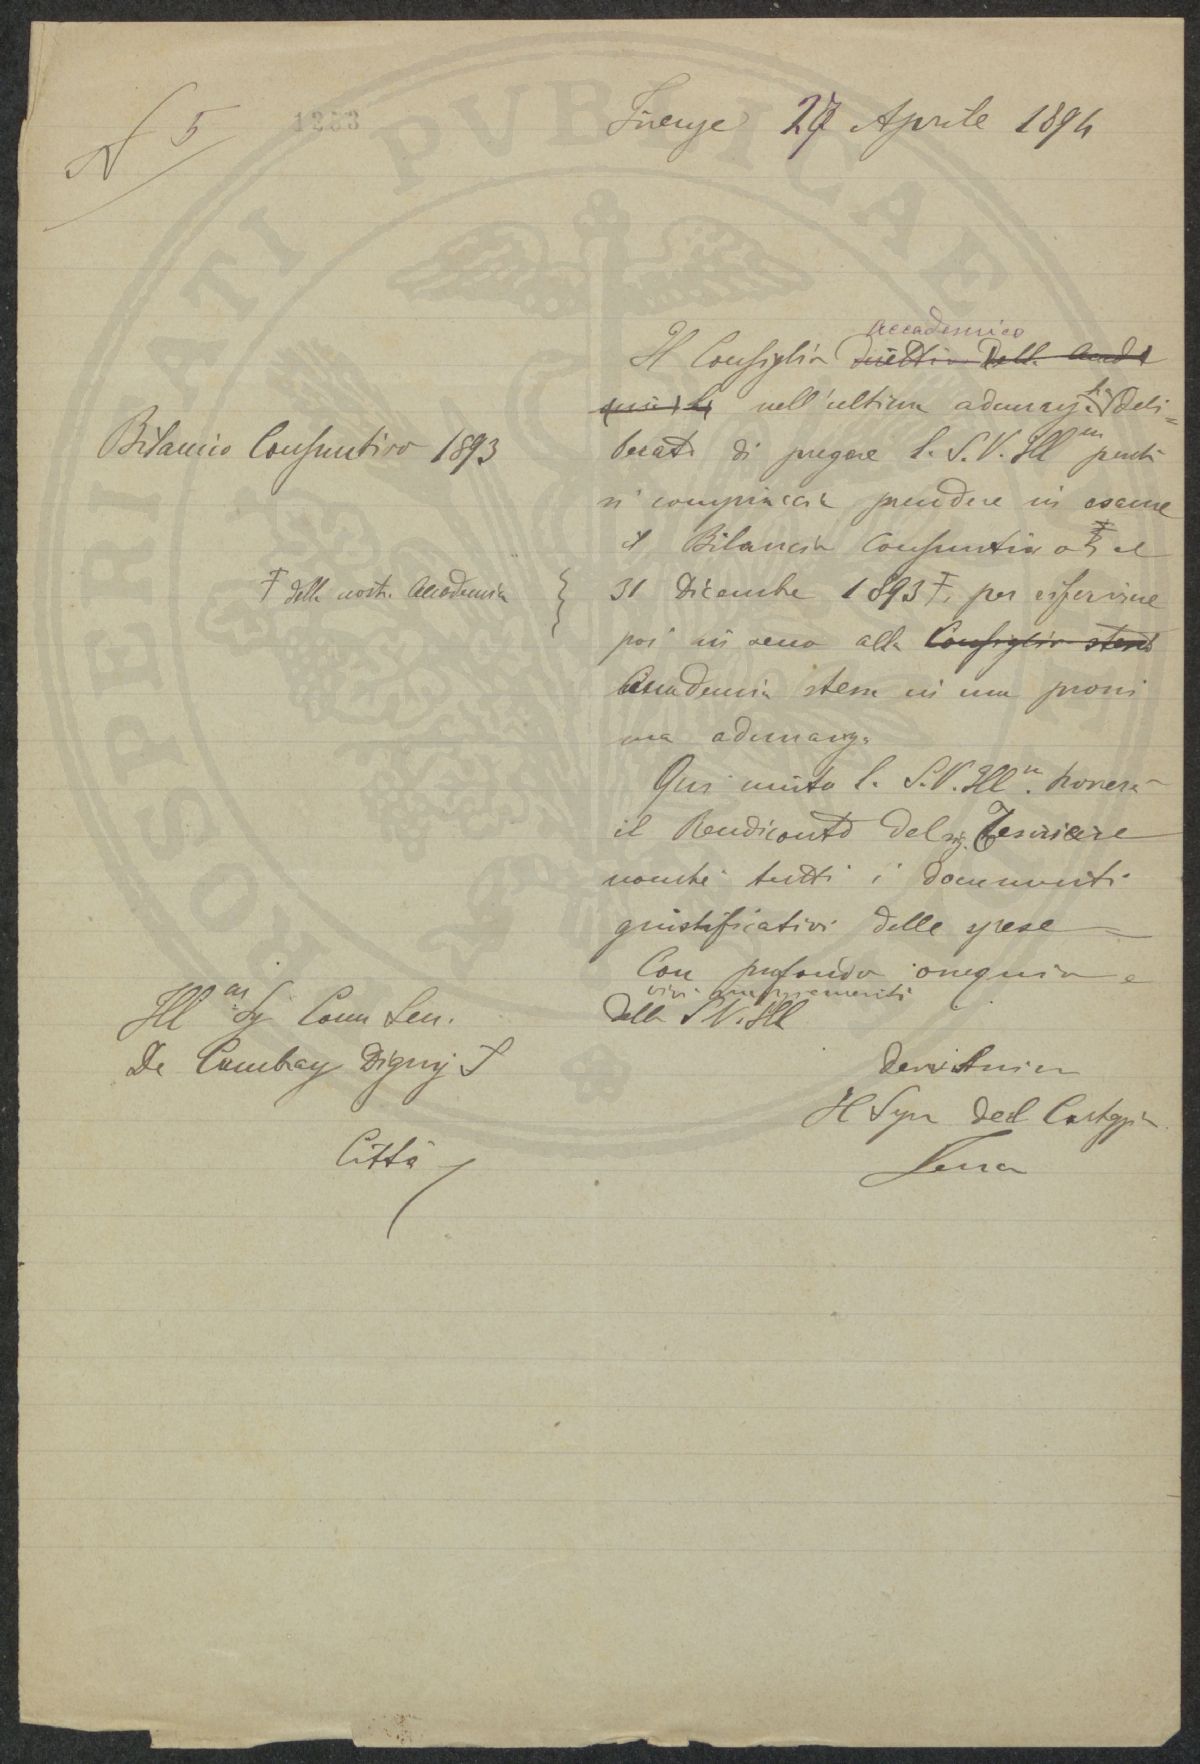 N 5
1253
Firenze 27 Aprile 1894
Accademico
Il Consiglio Direttivo dell. Accad
nell'ultima adunanza ha deli=
Bilancio Consuntivo 1893
berato di pregare l. S.V. Ill perchè
si compiaccia prendere in esame
il Bilancio Consuntivo al
31 Dicembre 1893 per riferirne
della nostra Accademia
poi in seno alla Consiglio stesso
Accademia stessa in una prossi
ma adunanza
Qui unito l. S.V. Ill troverà
il Rendiconto del sig. Tesoriere
nonchè tutti i documenti
giustificativi delle spese
Con profondo ossequio e
vivi ringraziamenti
Della S.V. Ill
Ill Sig Comm Sen.
De Cambray Digny
Città
Devotissimo
Il Segr del Carteggio
PROSPERITATI PVBLICAE